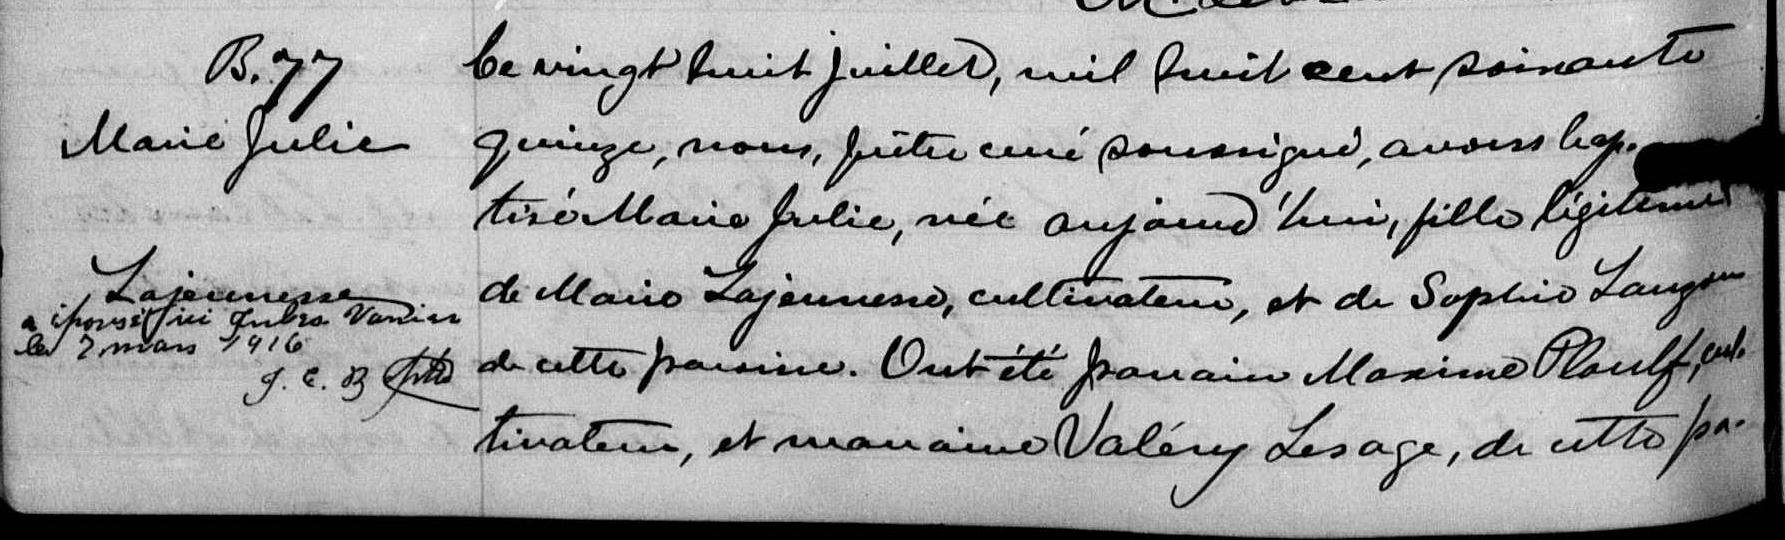 B. 77
Marie Julie
Lajeunesse
a épousé ici Jules Vanier
le 7 mars 1916
J. E. B. ptre
Le vingt huit juillet, mil huit cent soixante
quinze, nous, prêtre curé soussigné, avons bap-
tisé Marie Julie, née aujourd'hui, fille légitime
de Mario Lajeunesse, cultivateur, et de Sophie Lauzon
de cette paroisse. Ont été parrain Maxime Plouff, cul-
tivateur, et marraine Valéry Lesage, de cette pa-